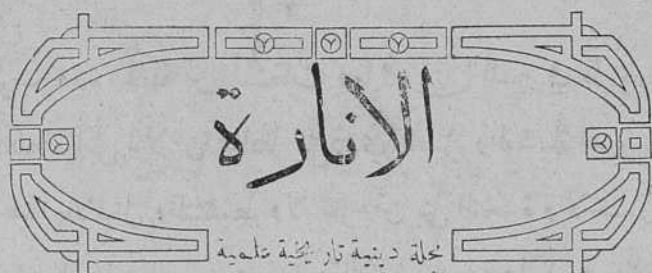 الانارة
مجلة دينية تاريخية علمية